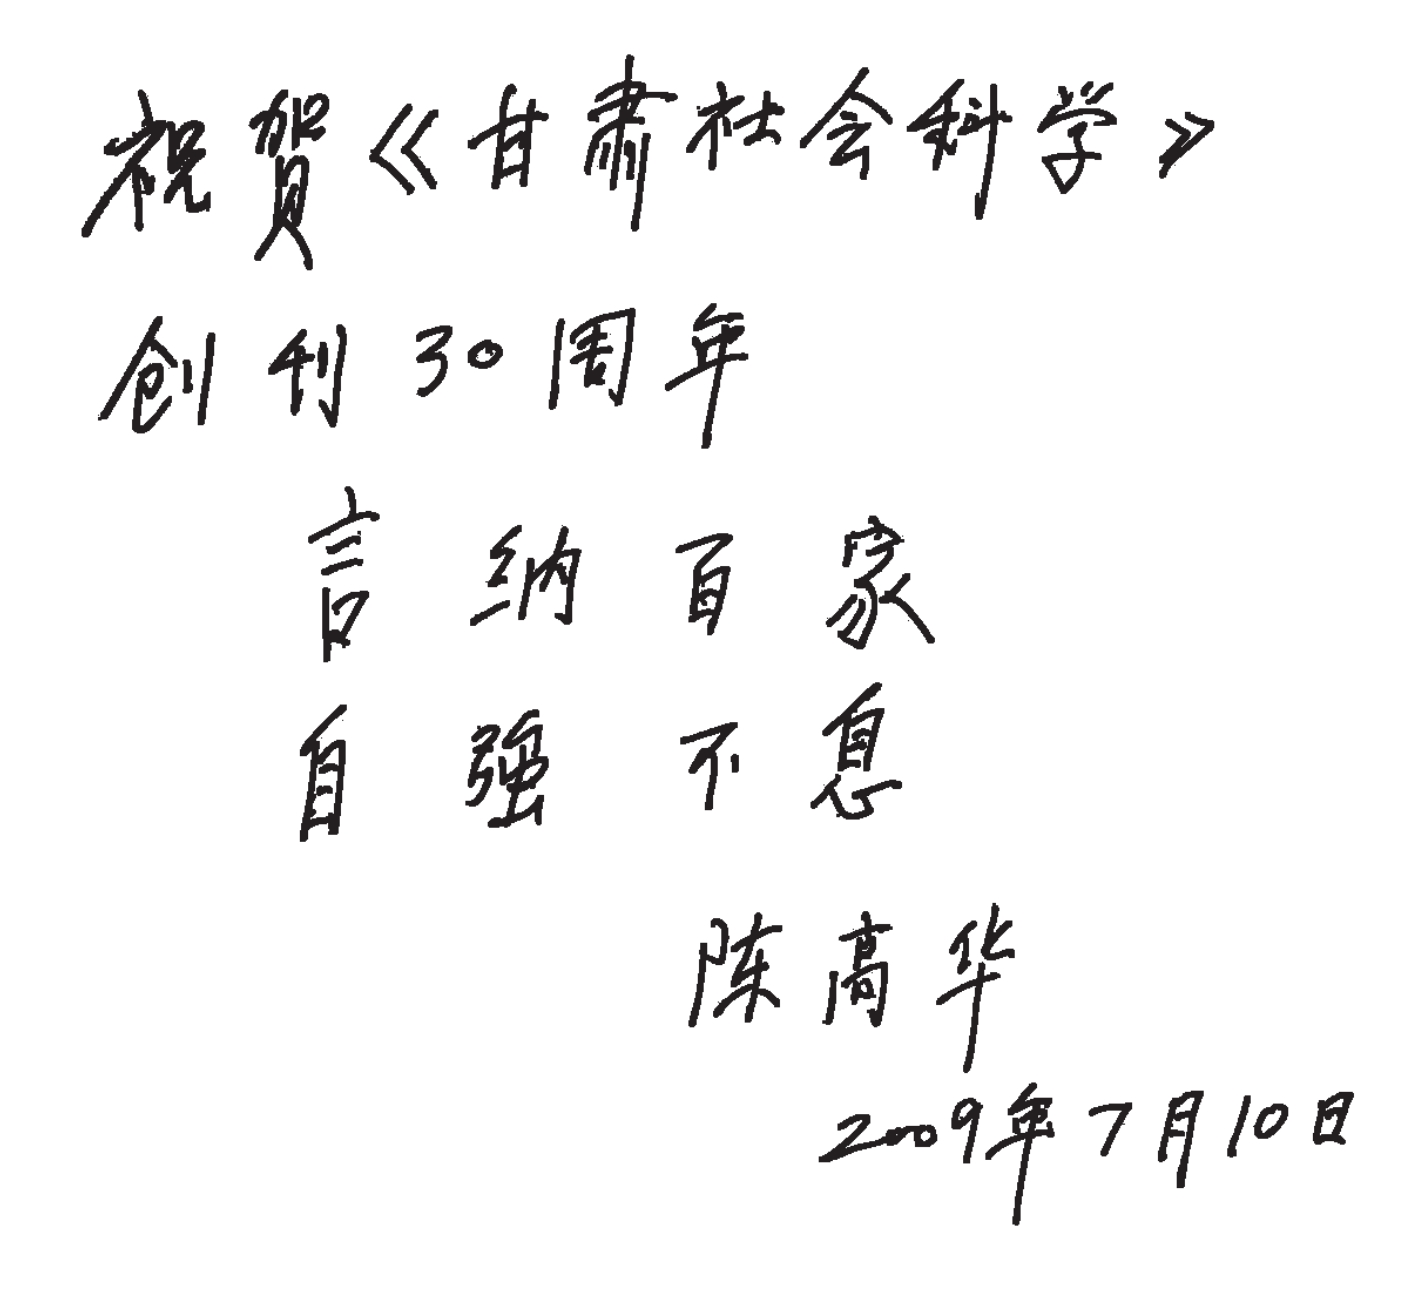 祝贺《甘肃社会科学》
创刊30周年
言纳百家
自强不息
陈高华
2009年7月10日